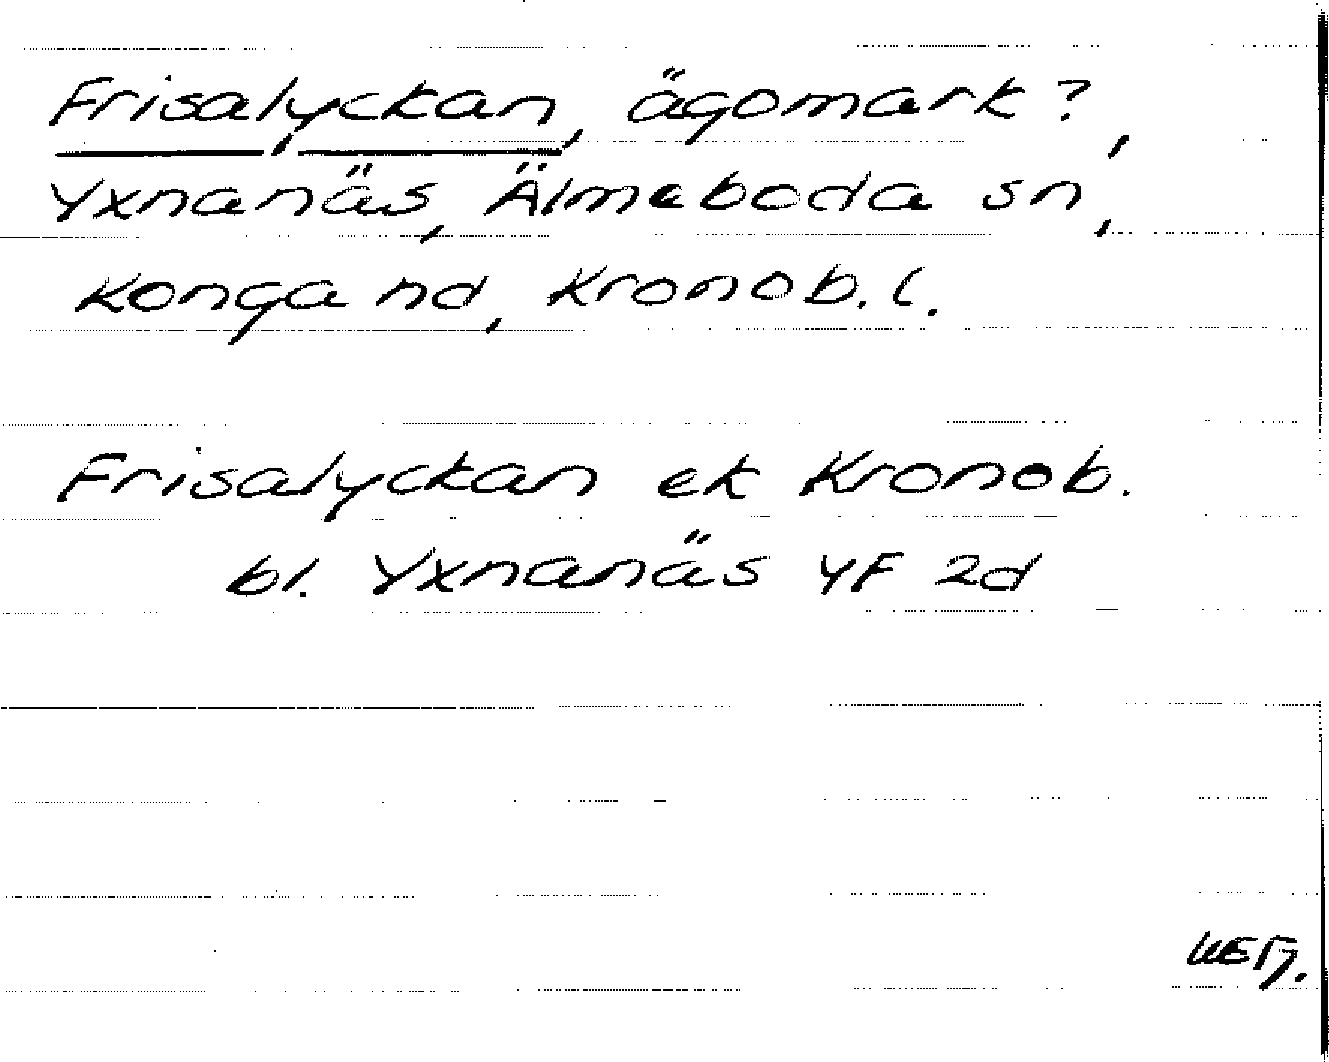 Frisalyckan, ägomark?,
Yxnanäs, Älmeboda sn,
Konga hd, Kronob. l.
Frisalyckan ek Kronob.
bl. Yxnanäs YF 2d